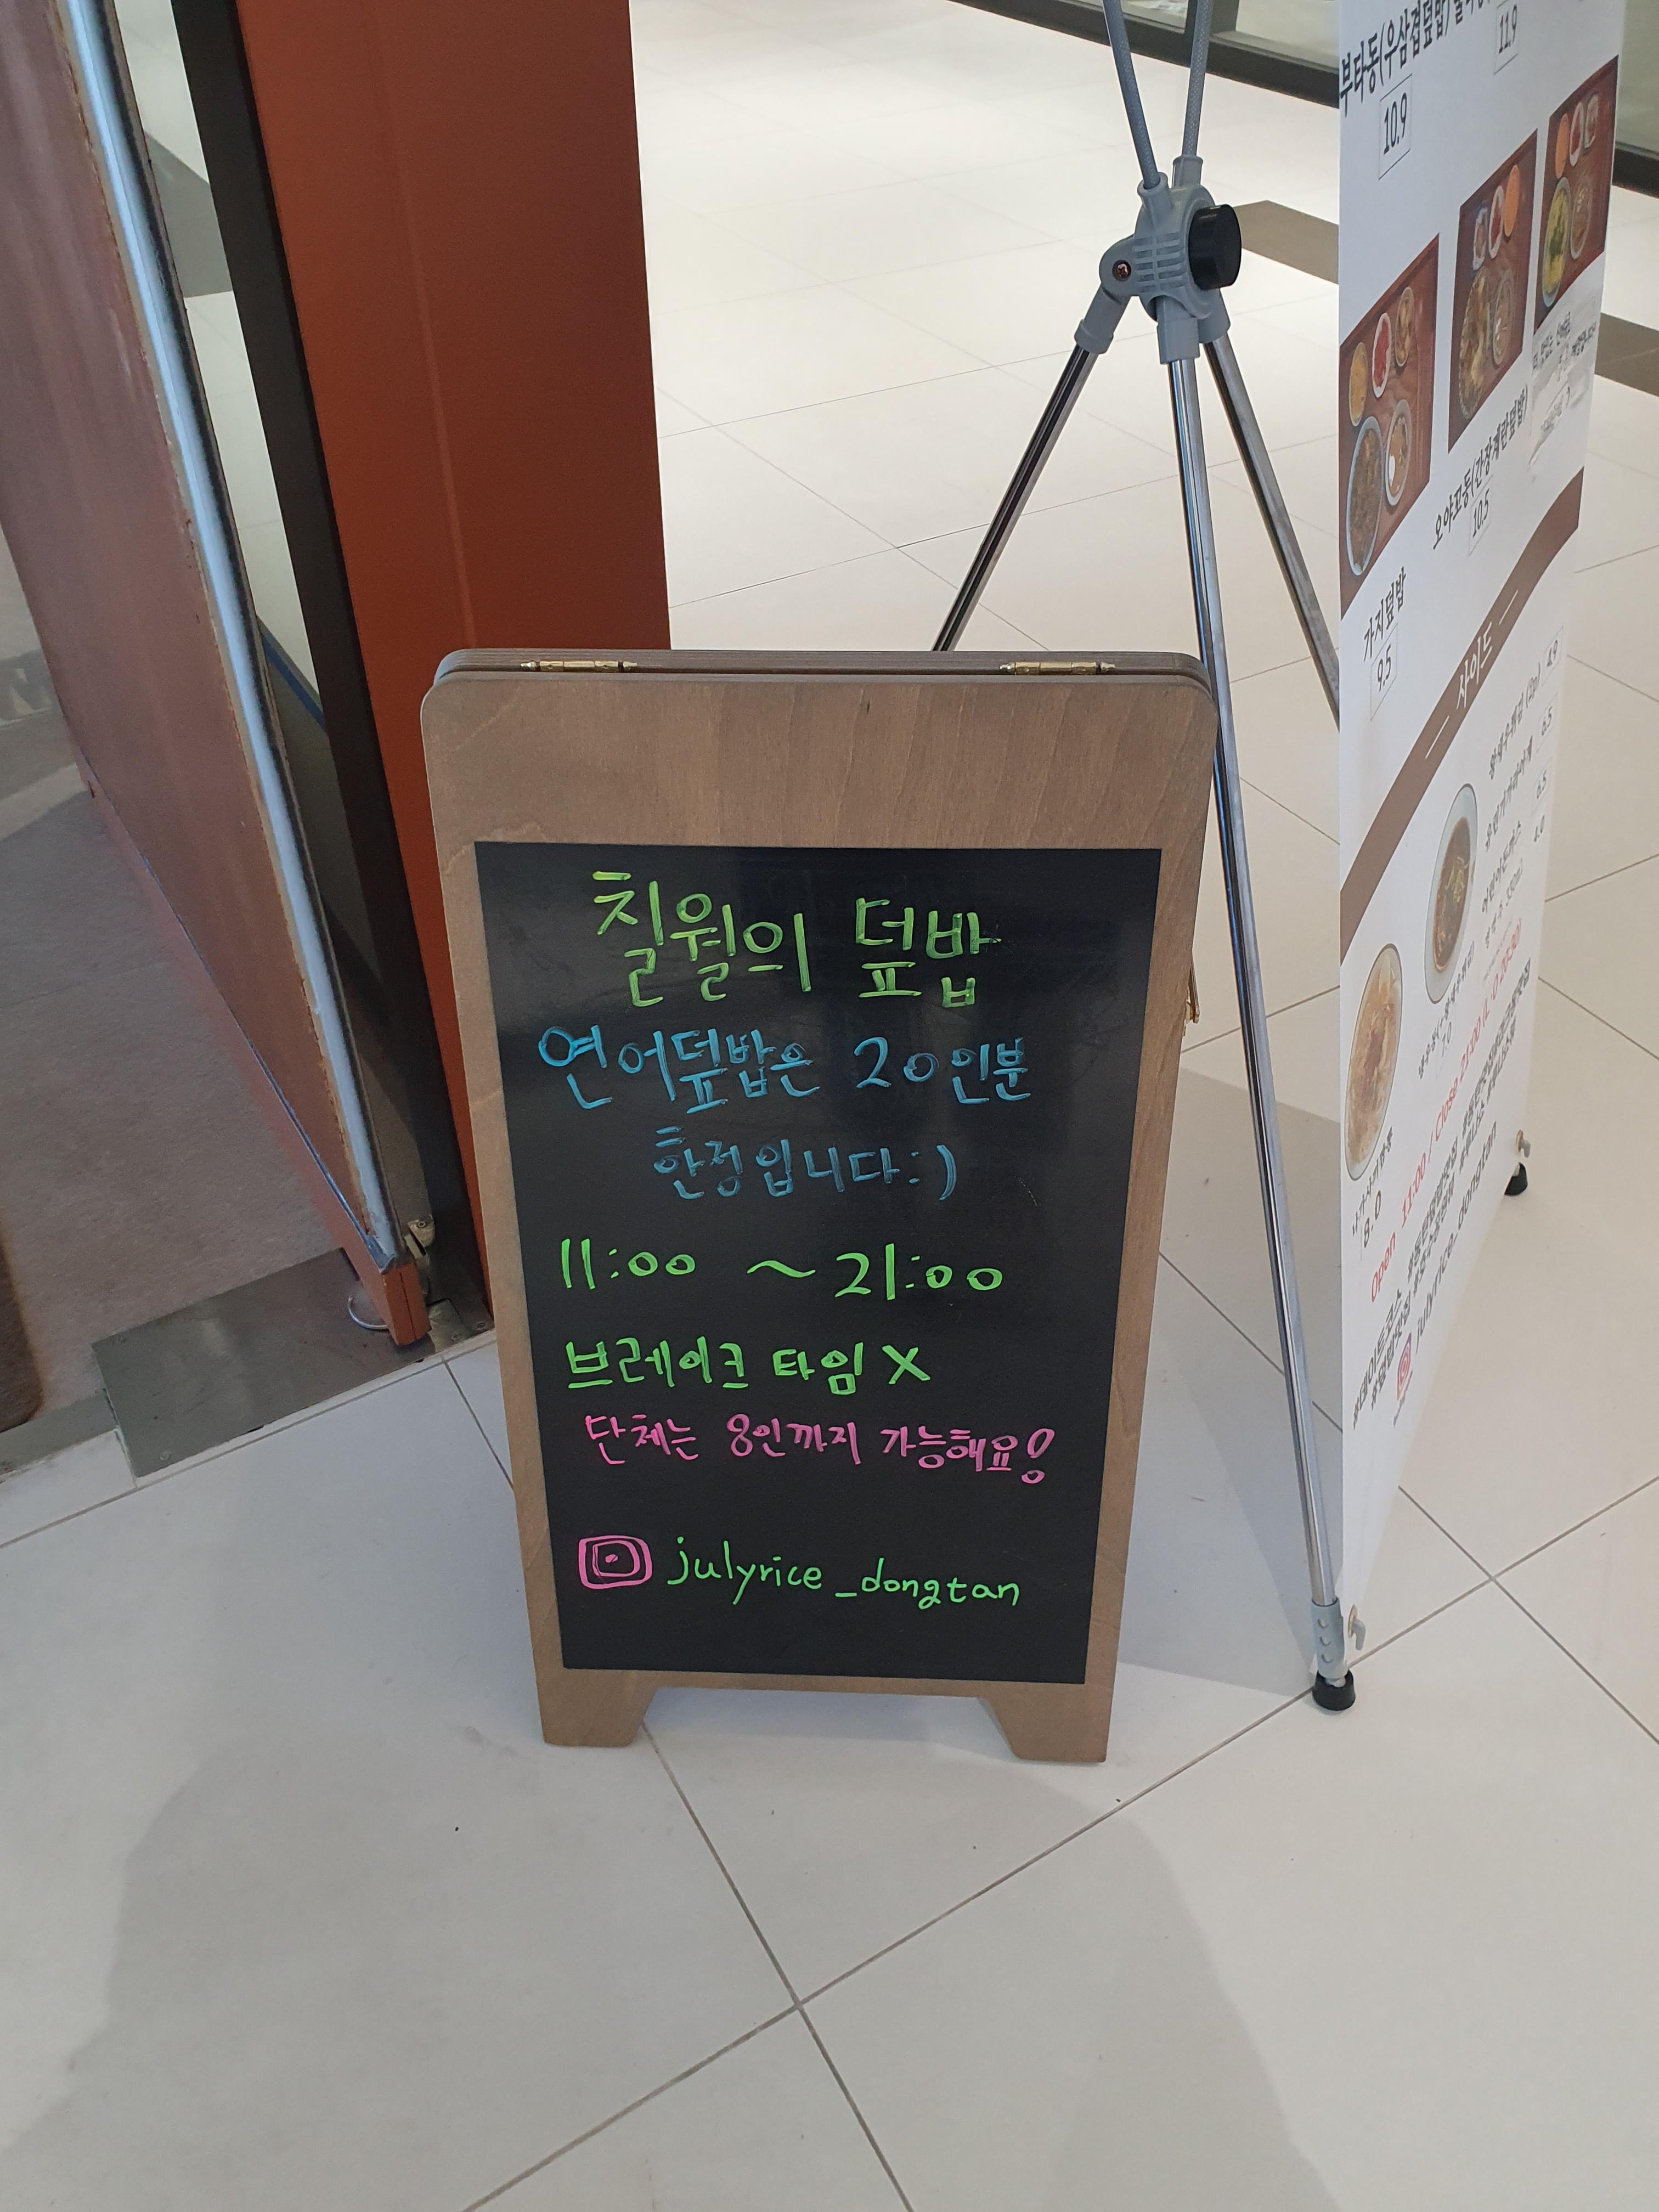 칠월의 덮밥
연어덮밥은 20인분
한정입니다:)
11:00 ~ 21:00
브레이크 타임 X
단체는 8인까지 가능해요!
julyrice_dongtan
부타동(우삼겹덮밥)
10.9
11.9
오야꼬동(간장계란덮밥)
10.5
가지덮밥
9.5
사이드
4.9
6.5
6.5
4.0
7.0
8.0
Open 11:00 / Close 21:00 (L.O 20:30)
julyrice_dongtan